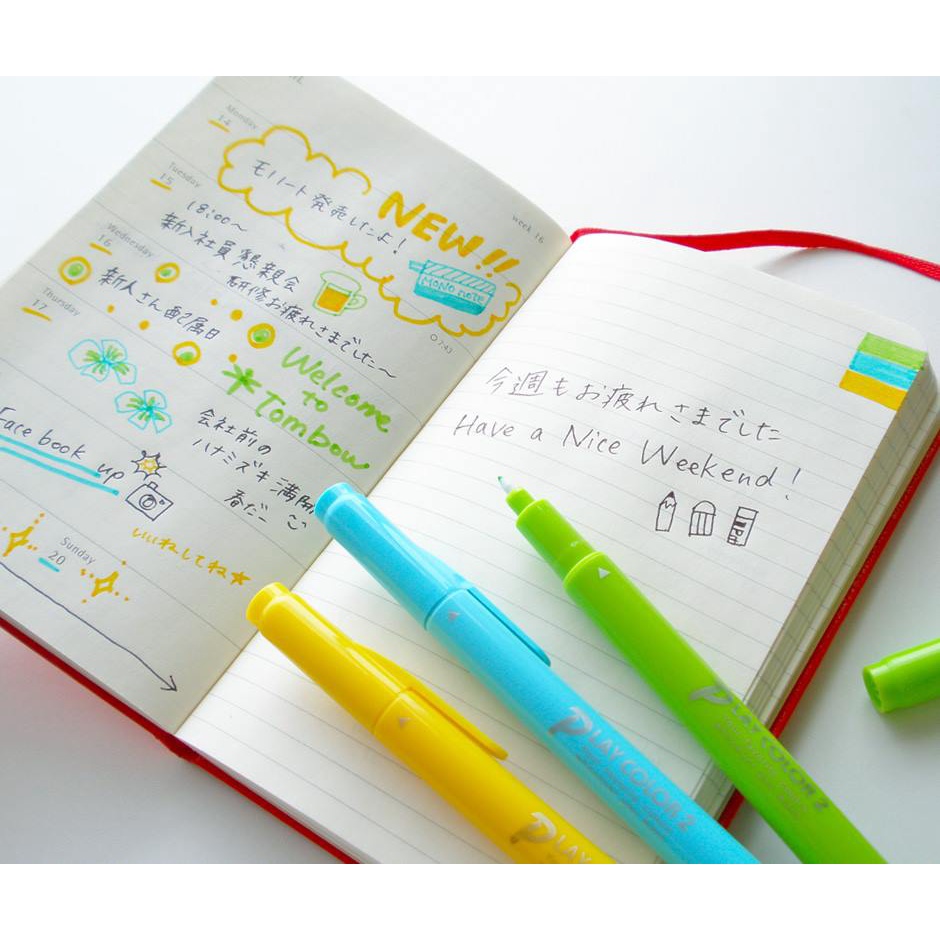 week 16
Monday
14
モノノート発売したよ!
NEW!!
MONO NOTE
Tuesday
15
18:00〜
新入社員懇親会
研修お疲れさまでした〜
Wednesday
16
新人さん配属日
Welcome
to
Tombow
Thursday
17
会社前の
ハナミズキ満開
春だー
Face book up
いいねしてね★
Sunday
20
今週もお疲れさまでした
Have a Nice Weekend!
PLAY COLOR 2
PLAY COLOR 2
PLAY